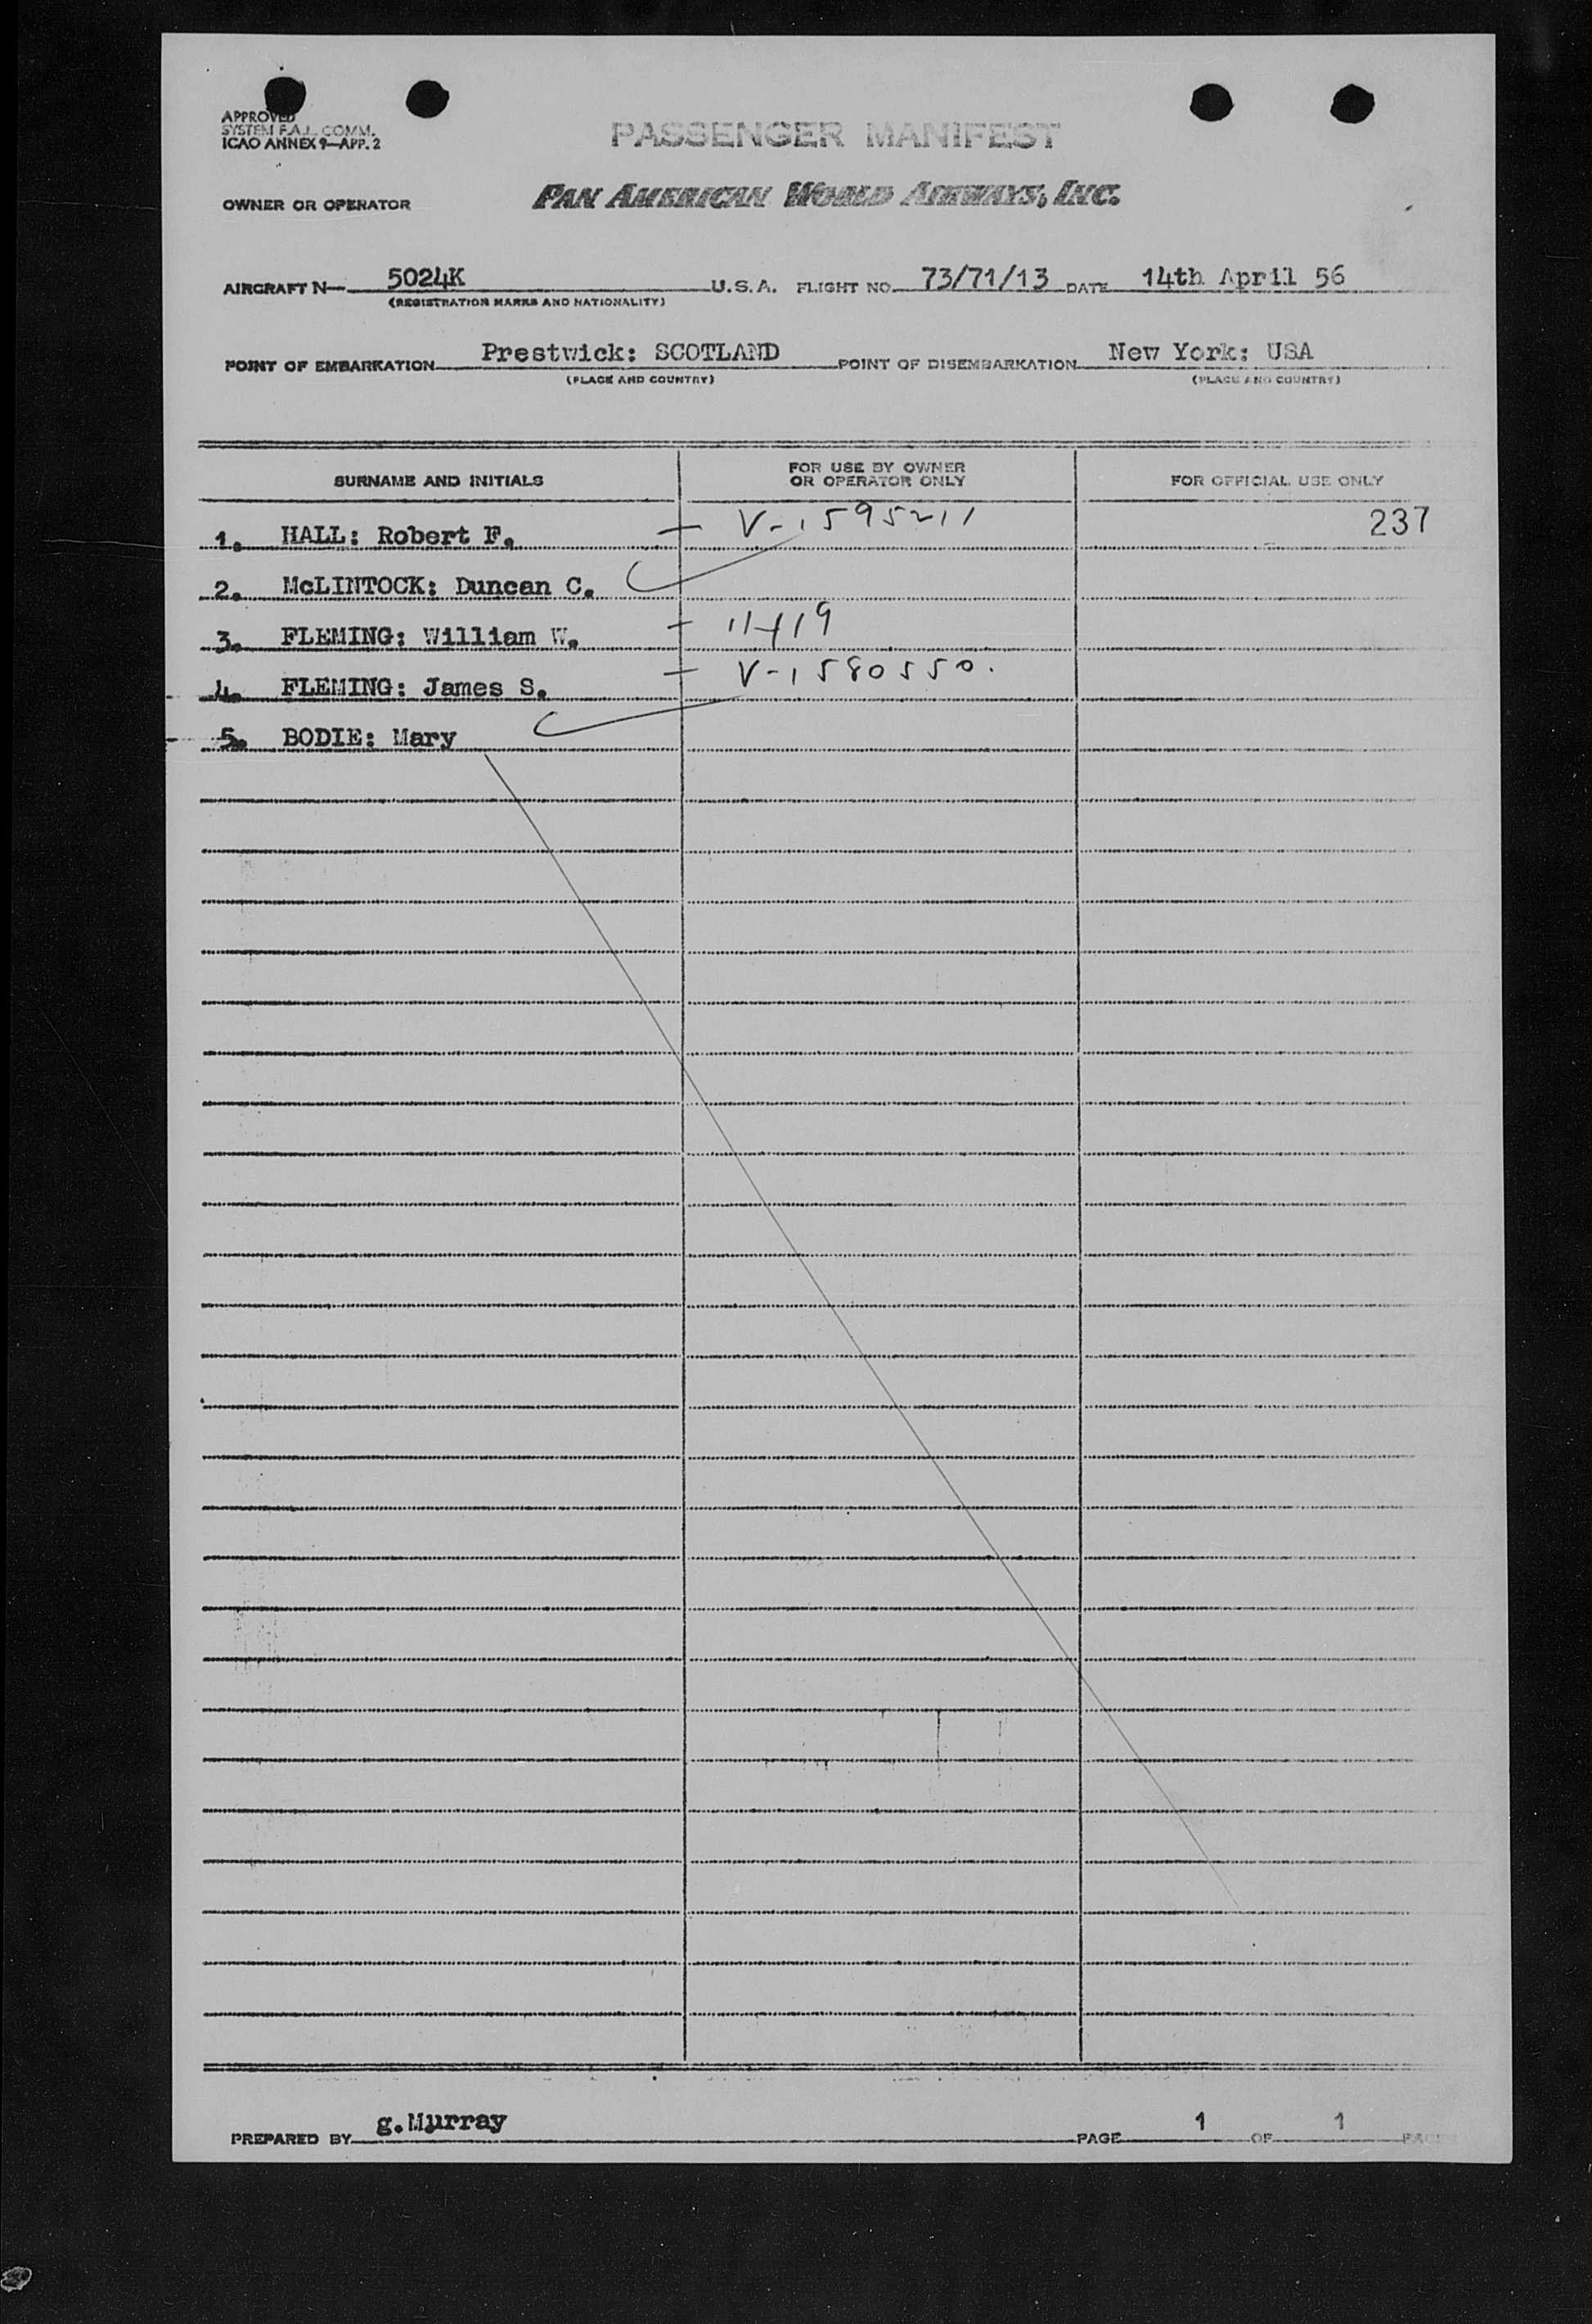 APPROVED
SYSTEM F.A.L. COMM.
ICAO ANNEX 9—APP. 2
PASSENGER MANIFEST
OWNER OR OPERATOR PAN AMERICAN WORLD AIRWAYS, INC.
AIRCRAFT N— 5024K U.S.A. FLIGHT NO. 73/71/13 DATE 14th April 56
(REGISTRATION MARKS AND NATIONALITY)
POINT OF EMBARKATION Prestwick: SCOTLAND POINT OF DISEMBARKATION New York: USA
(PLACE AND COUNTRY) (PLACE AND COUNTRY)
SURNAME AND INITIALS FOR USE BY OWNER OR OPERATOR ONLY FOR OFFICIAL USE ONLY
1. HALL: Robert F. — V-1595211 237
2. McLINTOCK: Duncan C.
3. FLEMING: William W. —
4. FLEMING: James S. — V-1580550.
5. BODIE: Mary
PREPARED BY g.Murray PAGE 1 OF 1 PAGES